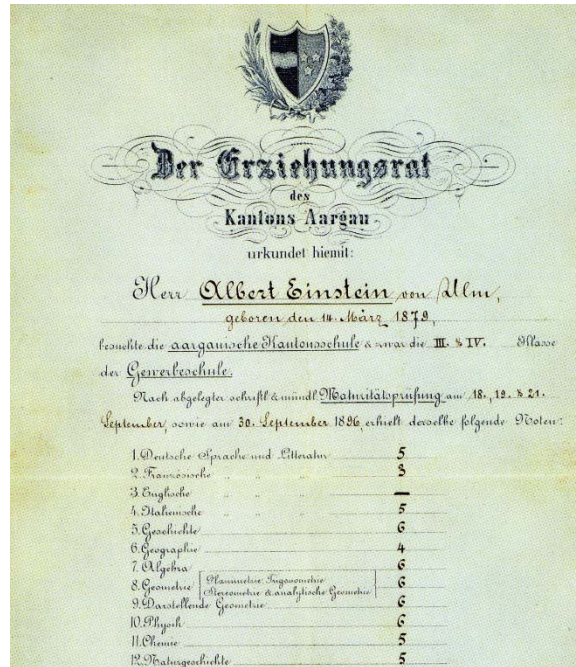 Der Erziehungsrat
des
Kantons Aargau
urkundet hiemit:
Herr Albert Einstein von Ulm,
geboren den 14. März 1879,
besuchte die aargauische Kantonsschule & zwar die III. & IV. Klasse
der Gewerbeschule.
Nach abgelegter schriftl. & mündl. Maturitätsprüfung am 18., 19. & 21.
September, sowie am 30. September 1896, erhielt derselbe folgende Noten:
1. Deutsche Sprache und Litteratur 5
2. Französische " " " 3
3. Englische " " " —
4. Italienische " " " 5
5. Geschichte 6
6. Geographie 4
7. Algebra 6
8. Geometrie [Planimetrie, Trigonometrie 6
Stereometrie & analytische Geometrie]
9. Darstellende Geometrie 6
10. Physik 6
11. Chemie 5
12. Naturgeschichte 5